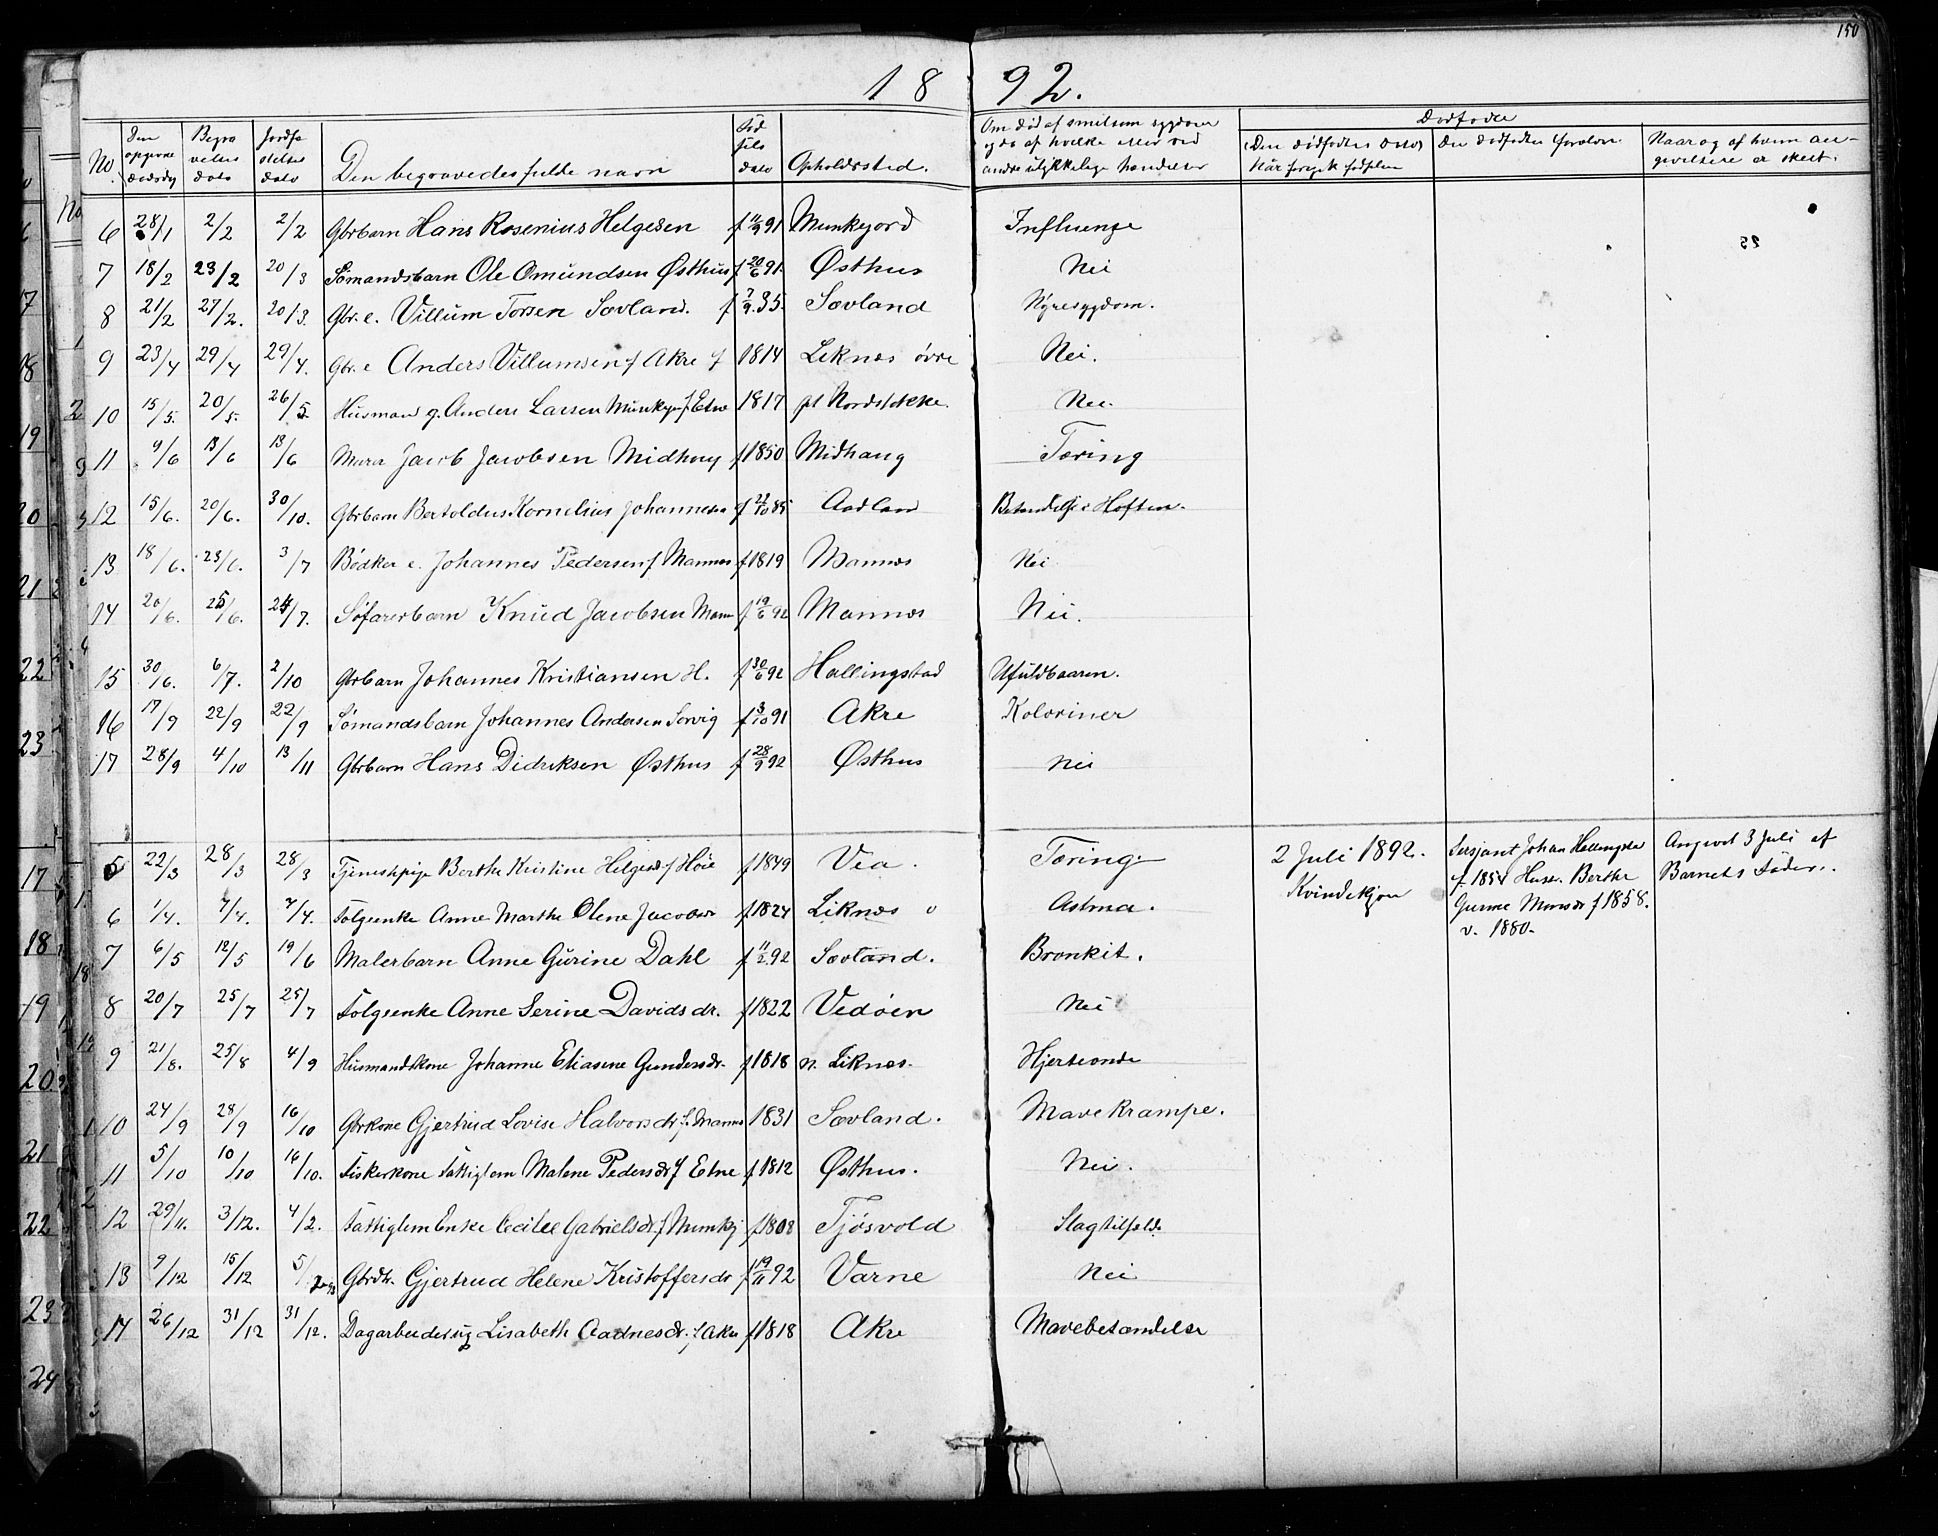 150
18 92.
No. Den opgivne dødsdag Begravelses dato Jordfæstelses dato Den begravedes fulde navn Fødselsdato Opholdssted. Om død af smitsom sygdom og da af hvilke eller ved andre ulykkelige hændelser Dødfødte
Den dødfødtes Når foregik fødselen Den dødfødtes forældre Naar og af hvem angivelsene er skeet.
6 28/1 2/2 2/2 Gbrbarn Hans Rosenius Helgesen f 11/9 91 Munkejord Influenze
7 18/2 23/2 20/3 Sømandsbarn Ole Omundsen Østhus f 20/6 91. Østhus Nei
8 21/2 27/2. 20/3. Gbr. e. Villum Torsen Sævland. f 7/9. 35. Sævland Nyresygdom.
9 23/4 29/4 29/4. Gbr. e Anders Villumsen f Akre f 1814 Liknes øvre Nei.
10 15/5. 20/5. 26/5 Husmand g. Anders Larsen Munkejor f. Etne 1817 pl Nordstokke. Nei.
11 9/6 13/6 13/6 Murer Jacob Jacobsen Midhaug f 1850 Midhaug Tæring
12 15/6. 20/6. 30/10. Gbrbarn Bertoldus Kornelius Johannesen f 21/10 85 Aadland Betændelse i Hoften.
13 18/6. 23/6. 3/7 Bødker e. Johannes Pedersen f Mannes f 1819 Mannes Nei
14 20/6. 25/6. 24/7. Søfarerbarn Knud Jacobsen Mann f 19/6 92 Mannes Nei.
15 30/6. 6/7. 2/10 Gbrbarn Johannes Kristiansen H. f 30/6 92 Hallingstad Ufuldbaaren.
16 17/9 22/9 22/9 Sømandsbarn Johannes Andersen Sørvig f 3/10 91 Akre Koloriner
17 28/9 4/10 13/11 Gbrbarn Hans Didriksen Østhus f 28/9 92 Østhus Nei
5 22/3 28/3 28/3 Tjenestpige Berthe Kristine Helgesd f Høie f 1849 Vea. Tæring. 2 Juli 1892. Kvindekjøn Sersjant Johan Hallingsta f 1854 Hust. Berthe Gurine Monsdr f 1858. v. 1880. Angivet 3 Juli af Barnets fader.
6 1/4. 7/4. 7/4. Folgeenke Anne Marthe Olene Jacobsdr f 1824 Liknes ø Astma.
7 6/5 12/5 19/6 Malerbarn Anne Gurine Dahl f 11/2 92 Sævland. Bronkit.
8 20/7 25/7 25/7 Folgeenke Anne Serine Davidsdr. f 1822 Vedøen Nei
9 21/8. 25/8 4/9 Husmandskone Johanne Eliasene Gundersdr. f 1818 n. Liknes. Hjerteonde
10 24/9 28/9 16/10 Gbrkone Gjertrud Lovise Halvorsdr f. Mannes 1831 Sævland. Mavekrampe.
11 5/10 10/10 16/10. Fiskerkone Fattiglem Malene Pedersdr f Etne f 1812 Østhus. Nei.
12 29/11. 3/12. 4/2. Fattiglem Enke Cecilie Gabrielsdr. f Munkj f 1808 Tjøsvold Slagtilfælde
13 9/12 15/12 5/2 Gbrdtr. Gjertrud Helene Kristoffersdr f 19/11 92 Varne Nei
14 26/12 31/12 31/12. Dagarbeiderug Lisabeth Aadnesdr. f Akre f 1818 Akre Mavebetændelse